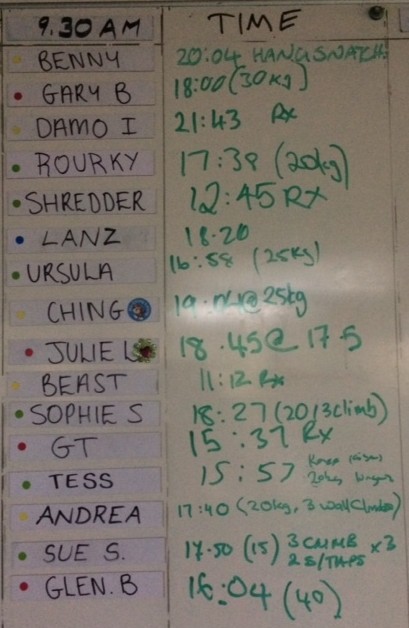 9.30 AM TIME
BENNY 20:04 HANG SNATCH
GARY B 18:00 (30kg)
DAMO I 21:43 Rx
ROURKY 17:39 (20kg)
SHREDDER 12:45 Rx
LANZ 18.20
URSULA 16:58 (25kg)
CHING 19:04@25kg
JULIE L 18.45@ 17.5
BEAST 11:12 Rx
SOPHIE S 18:27 (20/3climb)
GT 15:37 Rx
TESS 15:57 Knee raises
20kg
ANDREA 17:40 (20kg, 3 wall Climbs)
SUE S. 17:50 (15) 3 CLIMB x3
2 S/TAPS
GLEN.B 16:04 (40)